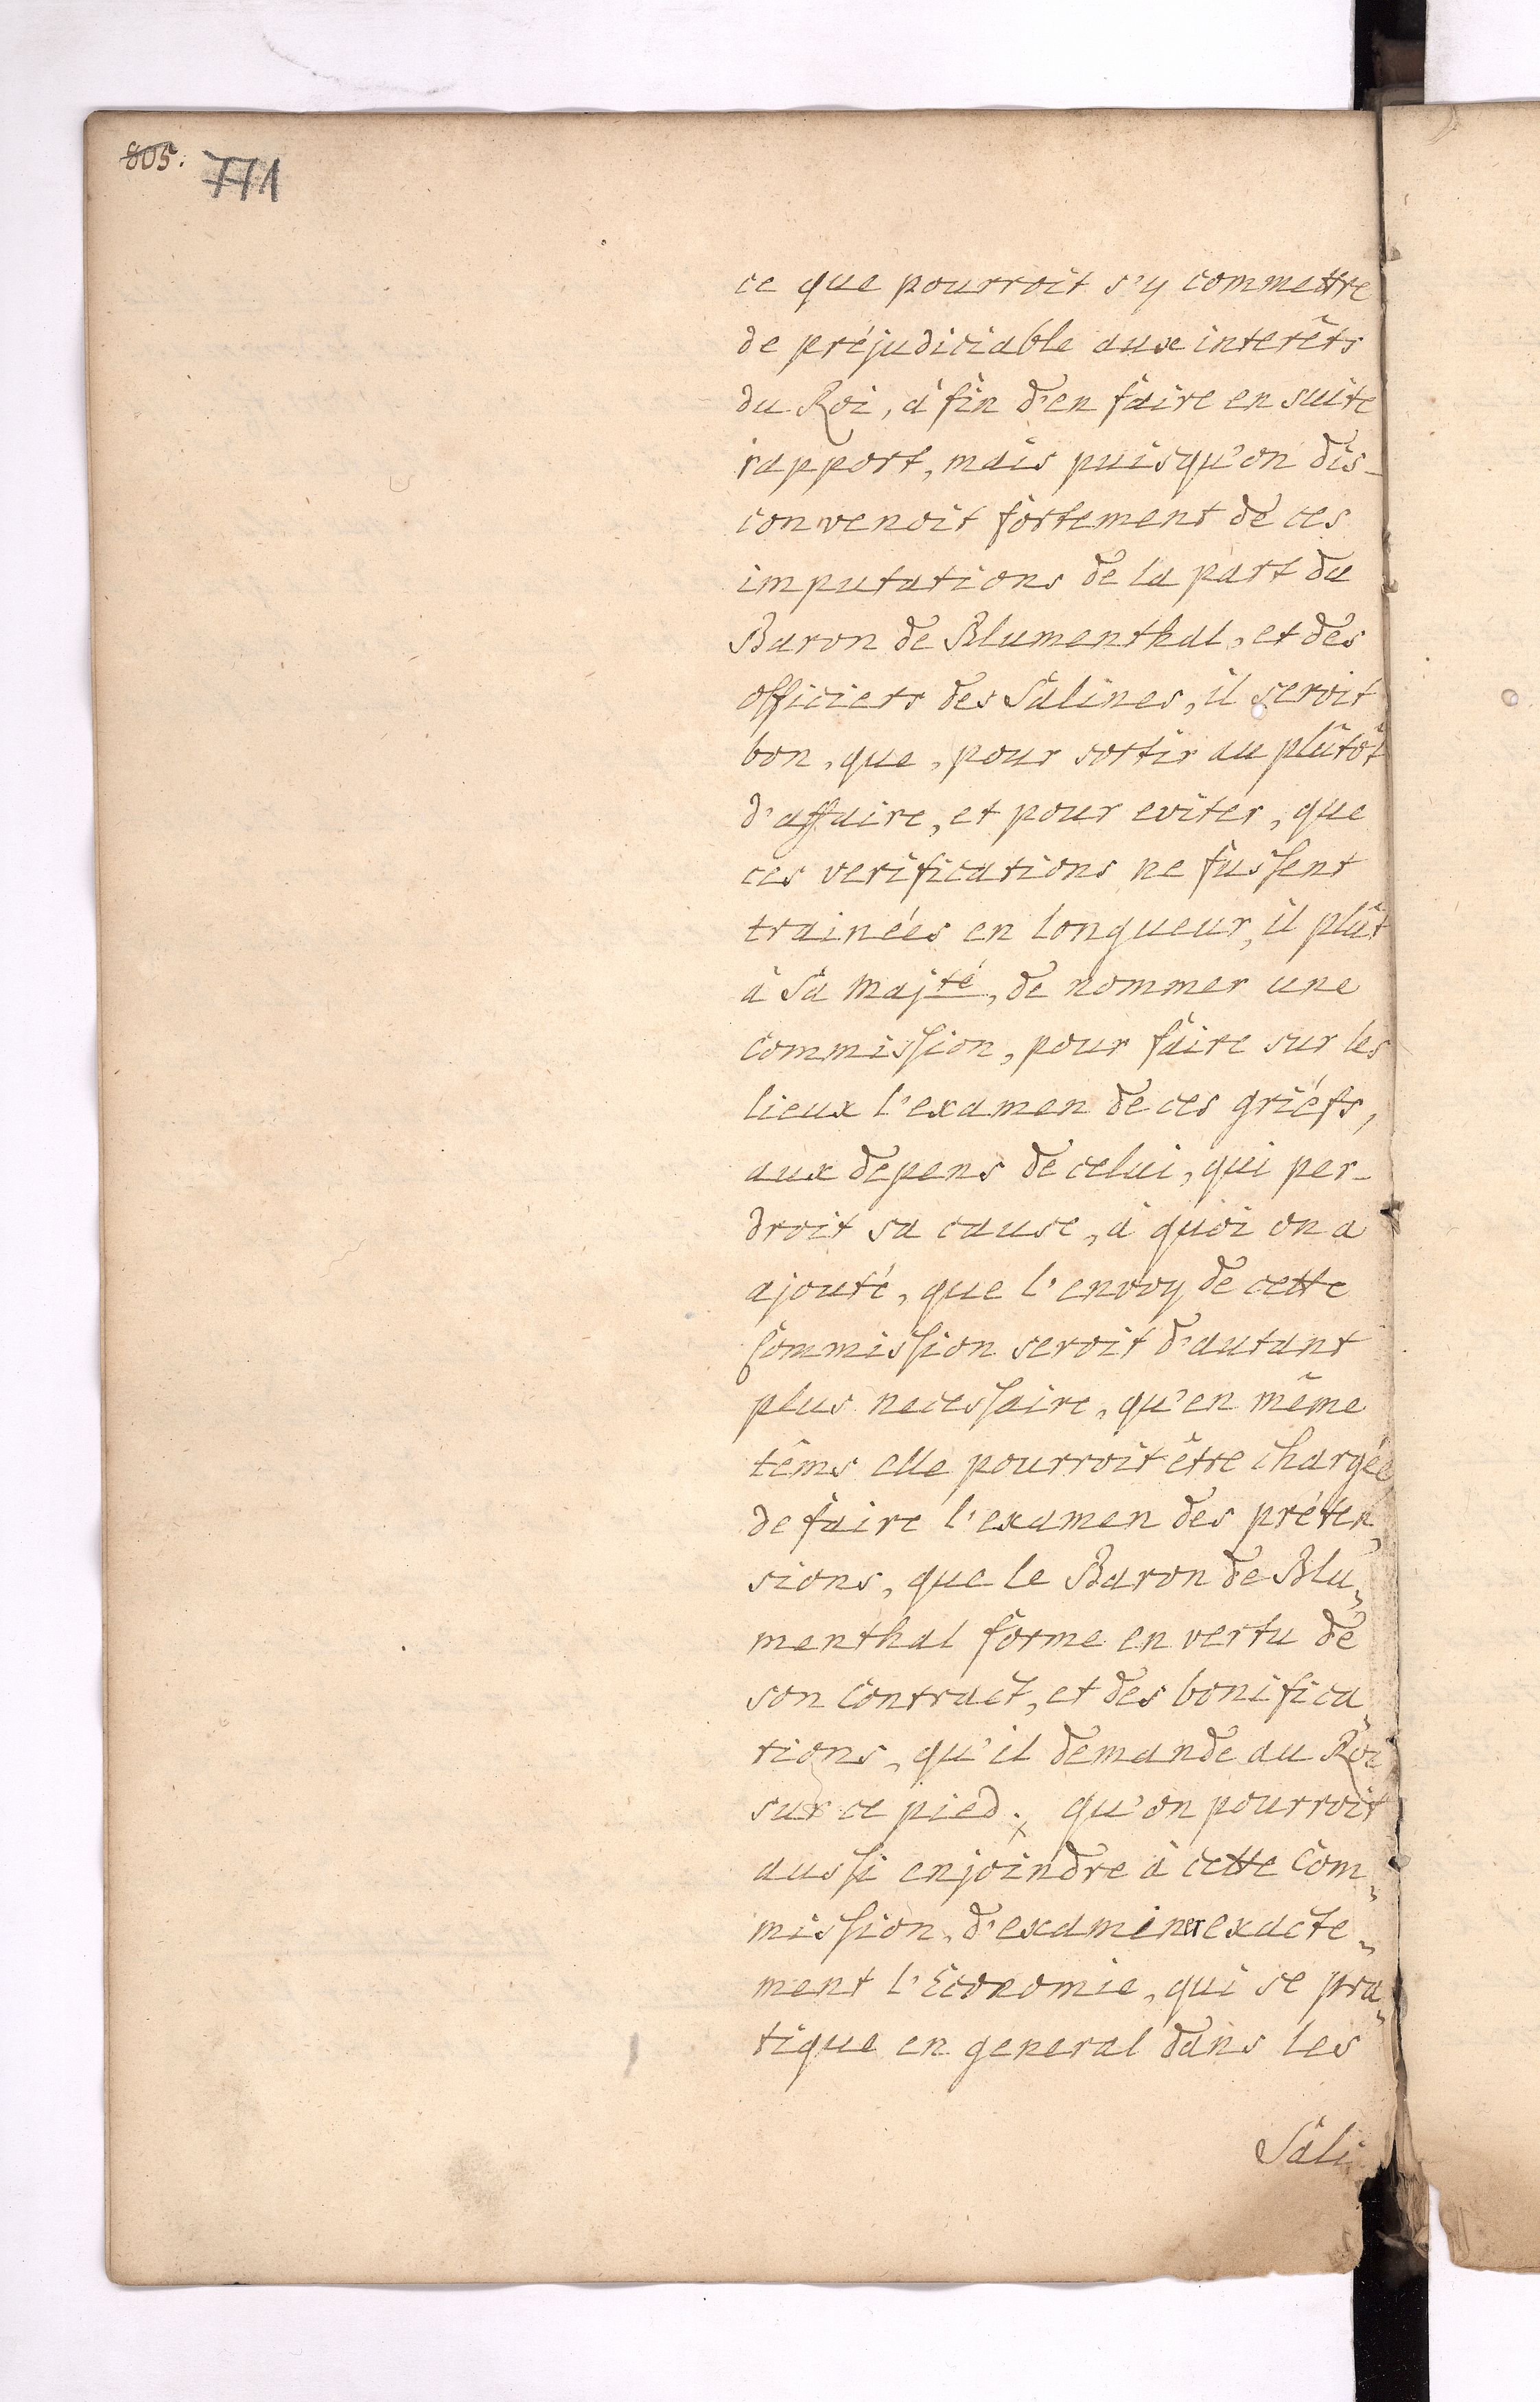 805. 771
ce que pourroit s'y commettre
de préjudiciable aux interêts
du Roi, à fin d'en faire en suite
rapport, mais puisqu'on dis-
convenoit fortement de ces
imputations de la part du
Baron de Blumenthal, et des
officiers des Salines, il seroit
bon, que, pour sortir au plûtôt
d'affaire, et pour eviter, que
ces verifications ne fussent
trainées en longueur, il plût
à Sa Majté, de nommer une
commission, pour faire sur les
lieux l'examen de ces griéfs,
aux depens de celui, qui per-
droit sa cause, à quoi on a
ajouté, que l'envoy de cette
Commission seroit d'autant
plus necessaire, qu'en même
têms elle pourroit être chargée
de faire l'examen des préten-
sions, que le Baron de Blu-
menthal forme en vertu de
son Contract, et des bonifica-
tions, qu'il demande au Roi
sur ce pied. qu'on pourroit
aussi enjoindre à cette Com-
mission, d'examiner exacte-
ment l'Economie, qui se pra-
tique en general dans les
Sali-